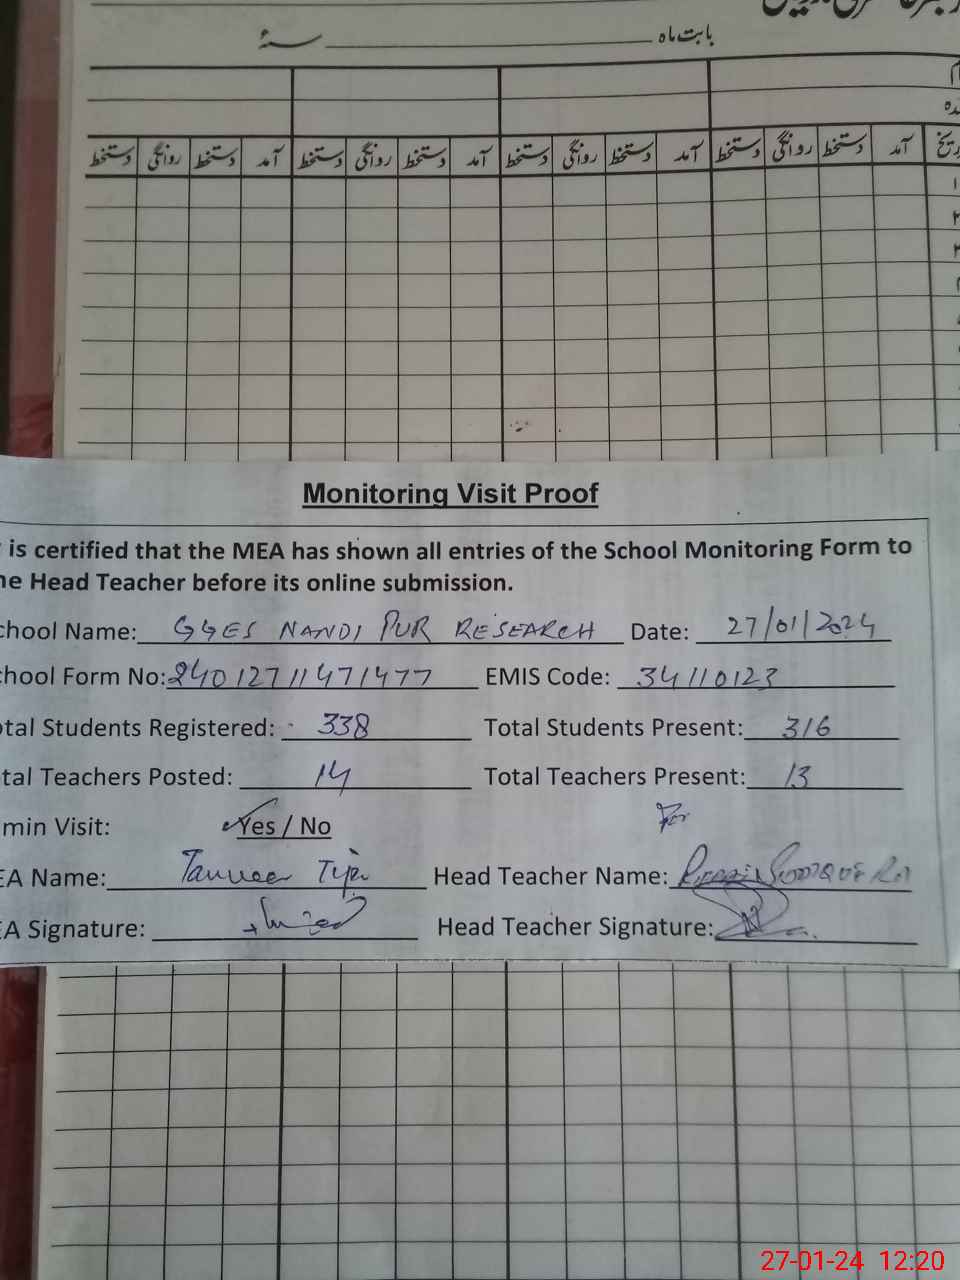 بابت ماہ ____________ سنۂ
دستخط روانگی دستخط آمد دستخط روانگی دستخط آمد دستخط روانگی دستخط آمد دستخط روانگی دستخط آمد
Monitoring Visit Proof
is certified that the MEA has shown all entries of the School Monitoring Form to
he Head Teacher before its online submission.
chool Name: GGES NANDI PUR RESEARCH Date: 27/01/2024
chool Form No: 24012711471477 EMIS Code: 34110123
otal Students Registered: 338 Total Students Present: 316
tal Teachers Posted: 14 Total Teachers Present: 13
min Visit: Yes / No
For
EA Name: Tanveer Head Teacher Name:
EA Signature: Head Teacher Signature:
27-01-24 12:20